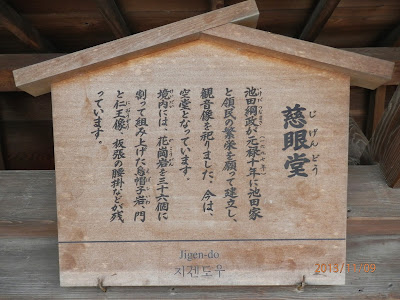 慈眼堂
じげんどう
池田綱政が元禄十年に池田家
と領民の繁栄を願って建立し、
観音像を祀りました。今は、
空堂となっています。
境内には、花崗岩を三十六個に
割って組み上げた烏帽子岩、門
と仁王像、板張の腰掛などが残
っています。
Jigen-do
지겐도우